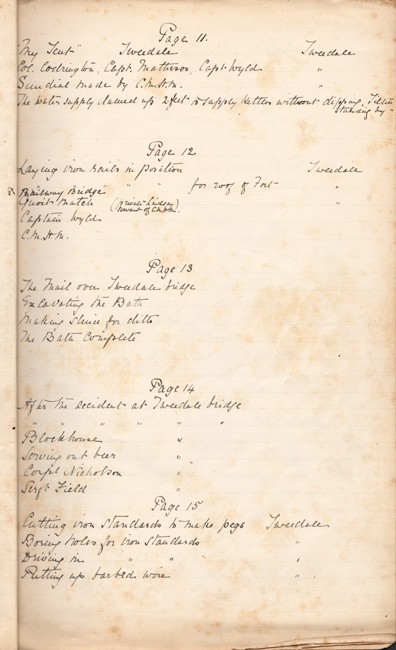 Page 11.
"My Tent" Tweedale Tweedale
Col. Codrington, Capt. Matheson, Capt Wyld "
Sundial made by C.M.H.M. "
The water supply dammed up 2 feet to supply kettles without dipping,
standing by
Page 12
Laying iron rails in position Tweedale
Railway Bridge " " for roof of Fort "
Quoit Match (Private Lindsay "
Captain Wyld
C.M.H.M.
Page 13
The Mail over Tweedale bridge
Excavating the Bath
Making sluice for ditto
The Bath Complete
Page 14
After the accident at Tweedale bridge
" " " " " "
Blockhouse "
Serving out beer "
Corpl Nicholson "
Sergt Field "
Page 15
Cutting iron standards to make pegs Tweedale
Boring holes for iron standards "
Driving in " " "
Putting up barbed wire "